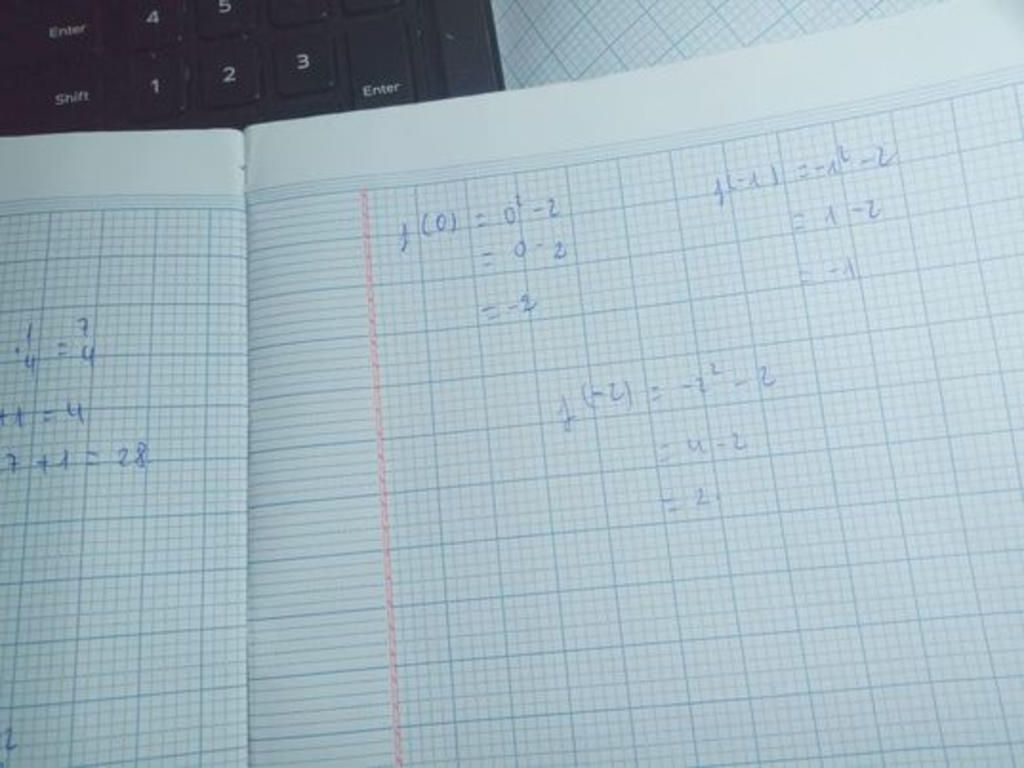 Enter 4 5
Shift 1 2 3 Enter
f(0) = 0² - 2
= 0 - 2
= -2
f(-1) = -1² - 2
= 1 - 2
= -1
f(-2) = -2² - 2
= 4 - 2
= 2
· 1/4 = 7/4
+1 = 4
7 + 1 = 28
2